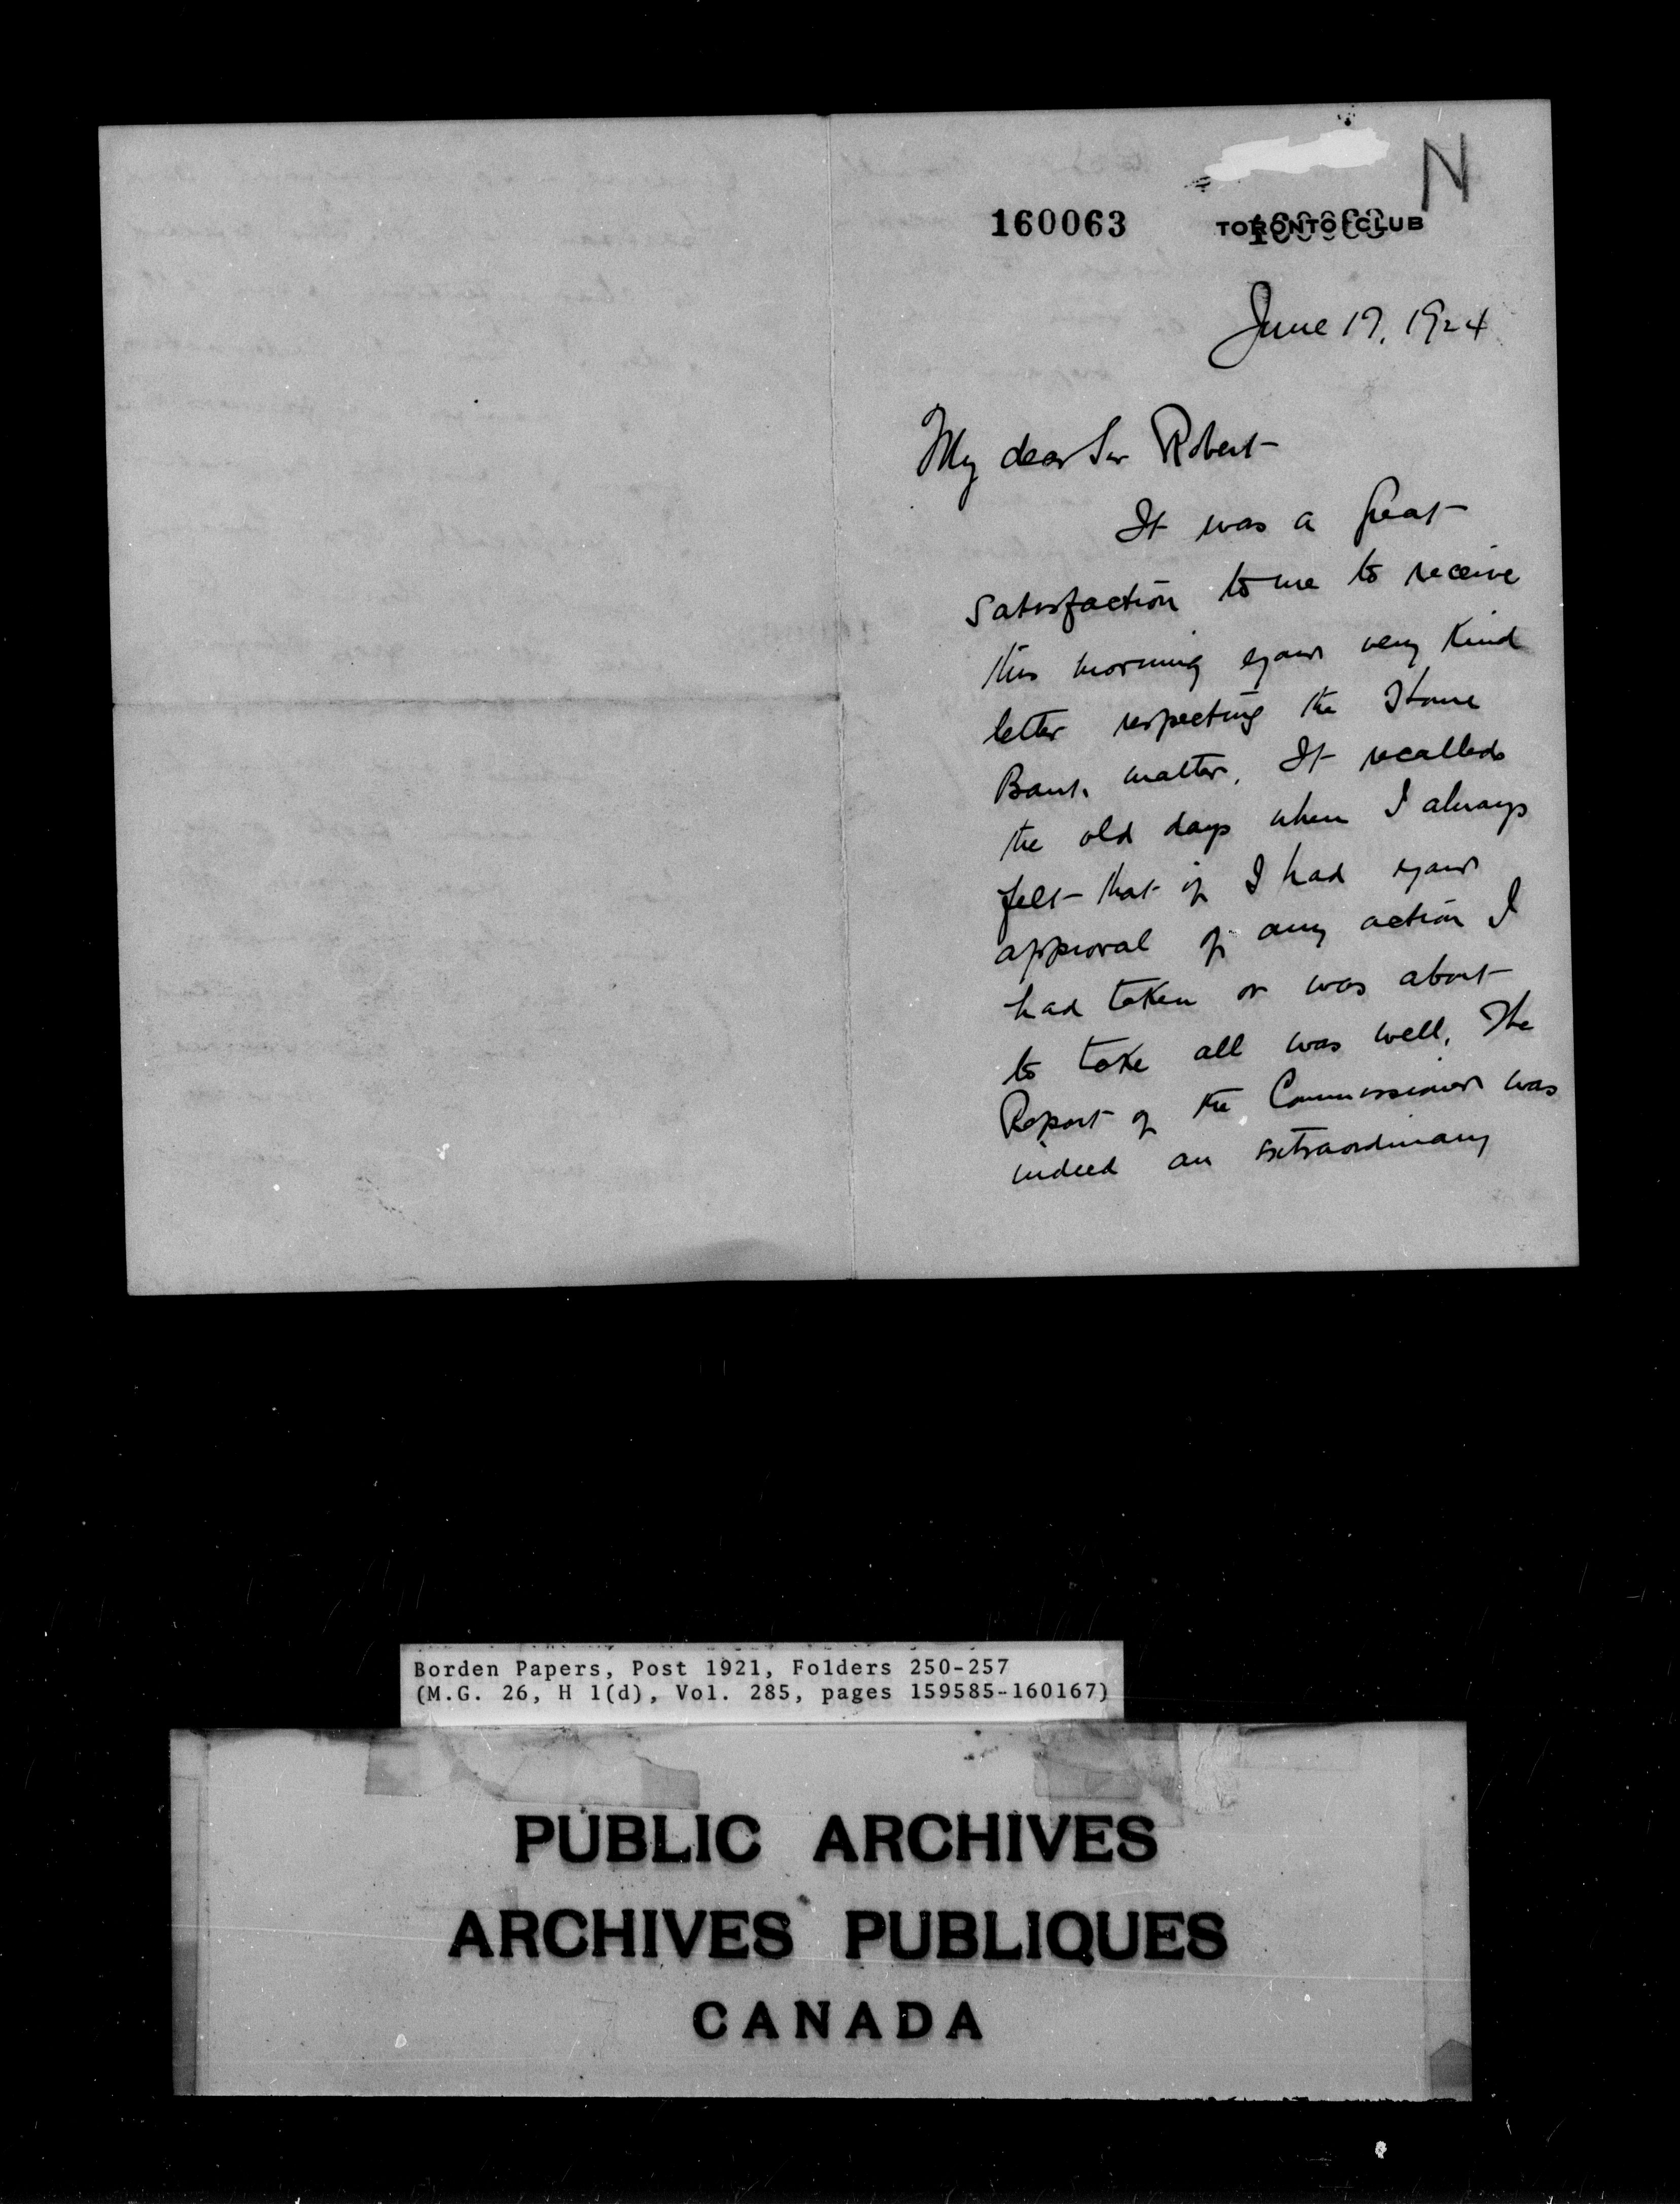 N
160063
TORONTO CLUB
June 19, 1924
My dear Sir Robert
It was a great
satisfaction to me to receive
this morning your very kind
letter respecting the Home
Bank matter. It recalled
the old days when I always
felt that if I had your
approval of any action I
had taken or was about
to take all was well. The
Report of the Commissioner was
indeed an extraordinary
Borden Papers, Post 1921, Folders 250-257
(M.G. 26, H 1(d), Vol. 285, pages 159585-160167)
PUBLIC ARCHIVES
ARCHIVES PUBLIQUES
CANADA